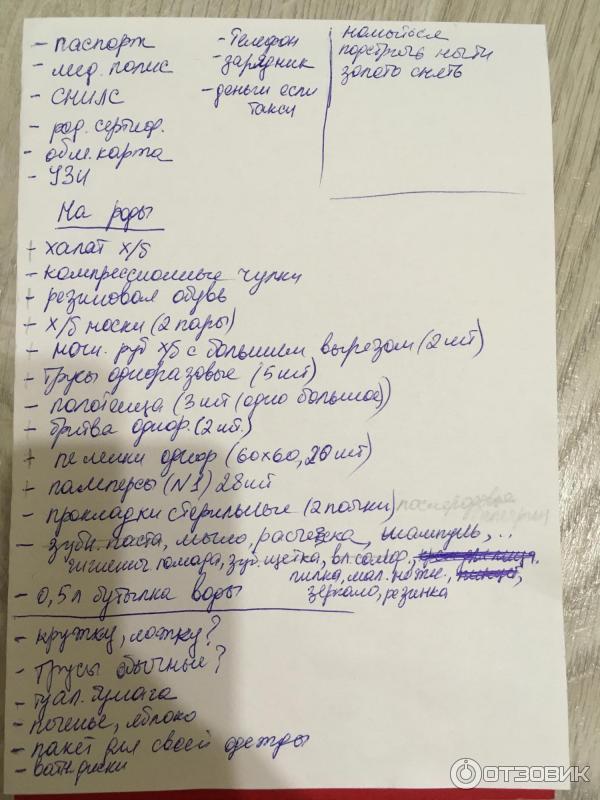 - паспорт
- мед. полис
- СНИЛС
- род. сертиф.
- обм. карта
- УЗИ
- Телефон
- зарядник
- деньги если
такси
помыться
подстричь ногти
золото снять
На роды
+ халат х/б
- компрессионные чулки
+ резиновая обувь
- х/б носки (2 пары)
- ночн. руб х/б с большим вырезом (2 шт)
+ трусы одноразовые (5 шт)
- полотенца (3 шт (одно большое))
- бритва однор. (2 шт.)
+ пеленки однор (60х60, 20 шт)
+ памперсы (N1) 28 шт
- прокладки стерильные (2 пачки) послеродовые
- зубн. паста, мыло, расческа, шампунь, ..
гигиенич помада, зуб. щетка, вл. салф.,
пилка, мал. ножн.,
зеркало, резинка
- 0,5 л бутылка воды
- кружку, ложку?
- Трусы обычные?
- туал. бумага
- печенье, яблоко
- пакет для своей одежды
- ватн. диски
ОТЗОВИК